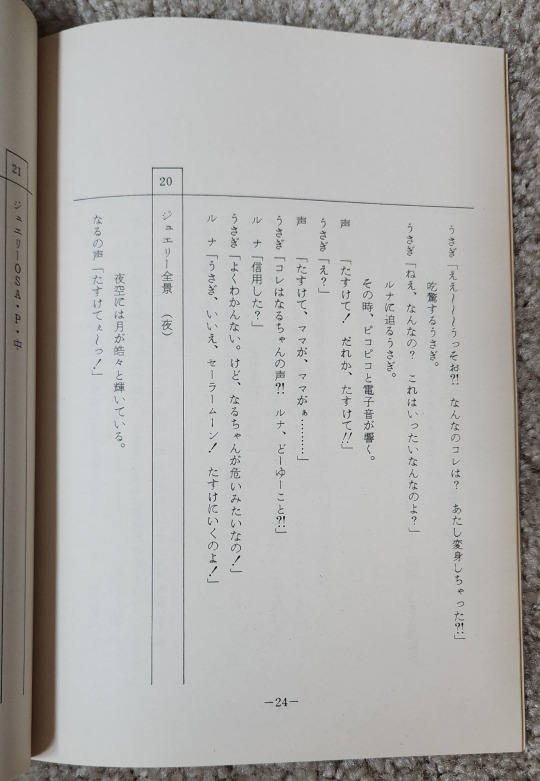 うさぎ「ええ〜〜〜うっそお?! なんなのコレは? あたし変身しちゃった?!」
吃驚するうさぎ。
うさぎ「ねえ、なんなの? これはいったいなんなのよ?」
ルナに迫るうさぎ。
その時、ピコピコと電子音が響く。
声 「たすけて! だれか、たすけて!!」
うさぎ「え?」
声 「たすけて、ママが、ママがぁ………」
うさぎ「コレはなるちゃんの声?! ルナ、どーゆーこと?!」
ル ナ「信用した?」
うさぎ「よくわかんない。けど、なるちゃんが危いみたいなの!」
ル ナ「うさぎ、いいえ、セーラームーン! たすけにいくのよ!」
20 ジュエリー全景 (夜)
夜空には月が皓々と輝いている。
なるの声「たすけてぇ〜っ!」
−24−
21 ジュエリーOSA・P・中